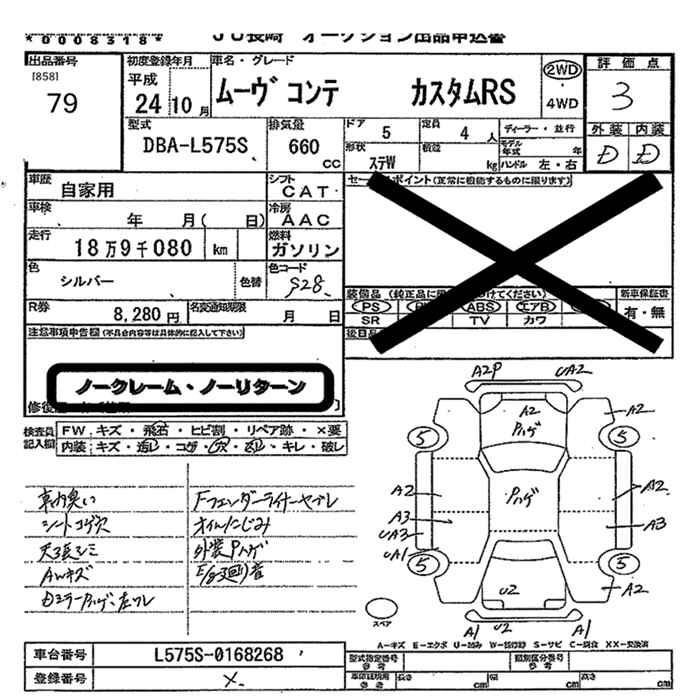 *0008318*
JU長崎 オークション出品申込書
出品番号 初度登録年月 車名・グレード 評価点
[858] 平成 2WD
79 24年10月 ムーヴ コンテ カスタムRS 4WD 3
型式 排気量 ドア 5 定員 4人 ディーラー・並行 外装 内装
DBA-L575S 660cc 形状 ステW 積載 kg モデル年式 年 ハンドル 左・右 D D
車歴 自家用 シフト CAT
車検 年 月( 日) 冷房 AAC
走行 18万9千080 km 燃料 ガソリン
色 シルバー 色替 色コード S28
装備品 (純正品に 新車保証書
R券 8,280円 名変通知期限 月 日 PS ABS エアB 有・無
SR TV カワ
注意事項申告欄(不具合内容等は具体的に記入して下さい)
ノークレーム・ノーリターン
検査員記入欄 FW キズ・飛石・ヒビ割・リペア跡・×要
内装 キズ・汚レ・コゲ・穴・スレ・キレ・破レ
車内臭い Fフェンダーライナーヤブレ
シートコゲ穴 オイルにじみ
天張シミ 外装Pハゲ
AWキズ E/g廻り音
A2P UA2
A2 A2
Pハゲ
5 5
A2 Pハゲ A2
A3 A3
UA3
UA1
5 5
U2 A2
A1 U2 A1
スペア
A−キズ E−エクボ U−凹み W−補修跡 S−サビ C−腐食 XX−交換済
車台番号 L575S-0168268 型式指定番号 参考 類別区分番号 参考
登録番号 × 車体証明用 参考 長さ cm 幅 cm 高さ cm